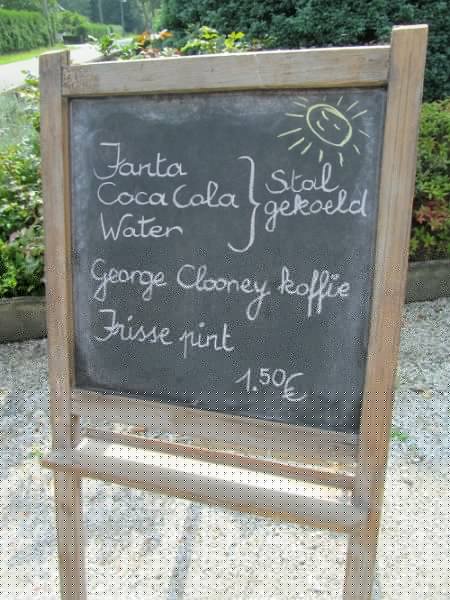 Fanta
Coca Cola
Water
} Stal
gekoeld
George Clooney koffie
Frisse pint
1.50€